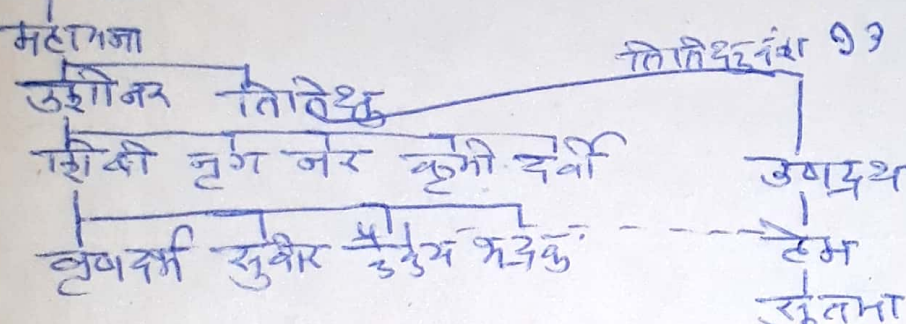 महामना
तितिक्षु वंश १३
उशीनर तितिक्षु
शिबी नृग नर कृमी दर्वा उषद्रथ
वृषदर्भ सुवीर मद्रक हेम
सुतपा